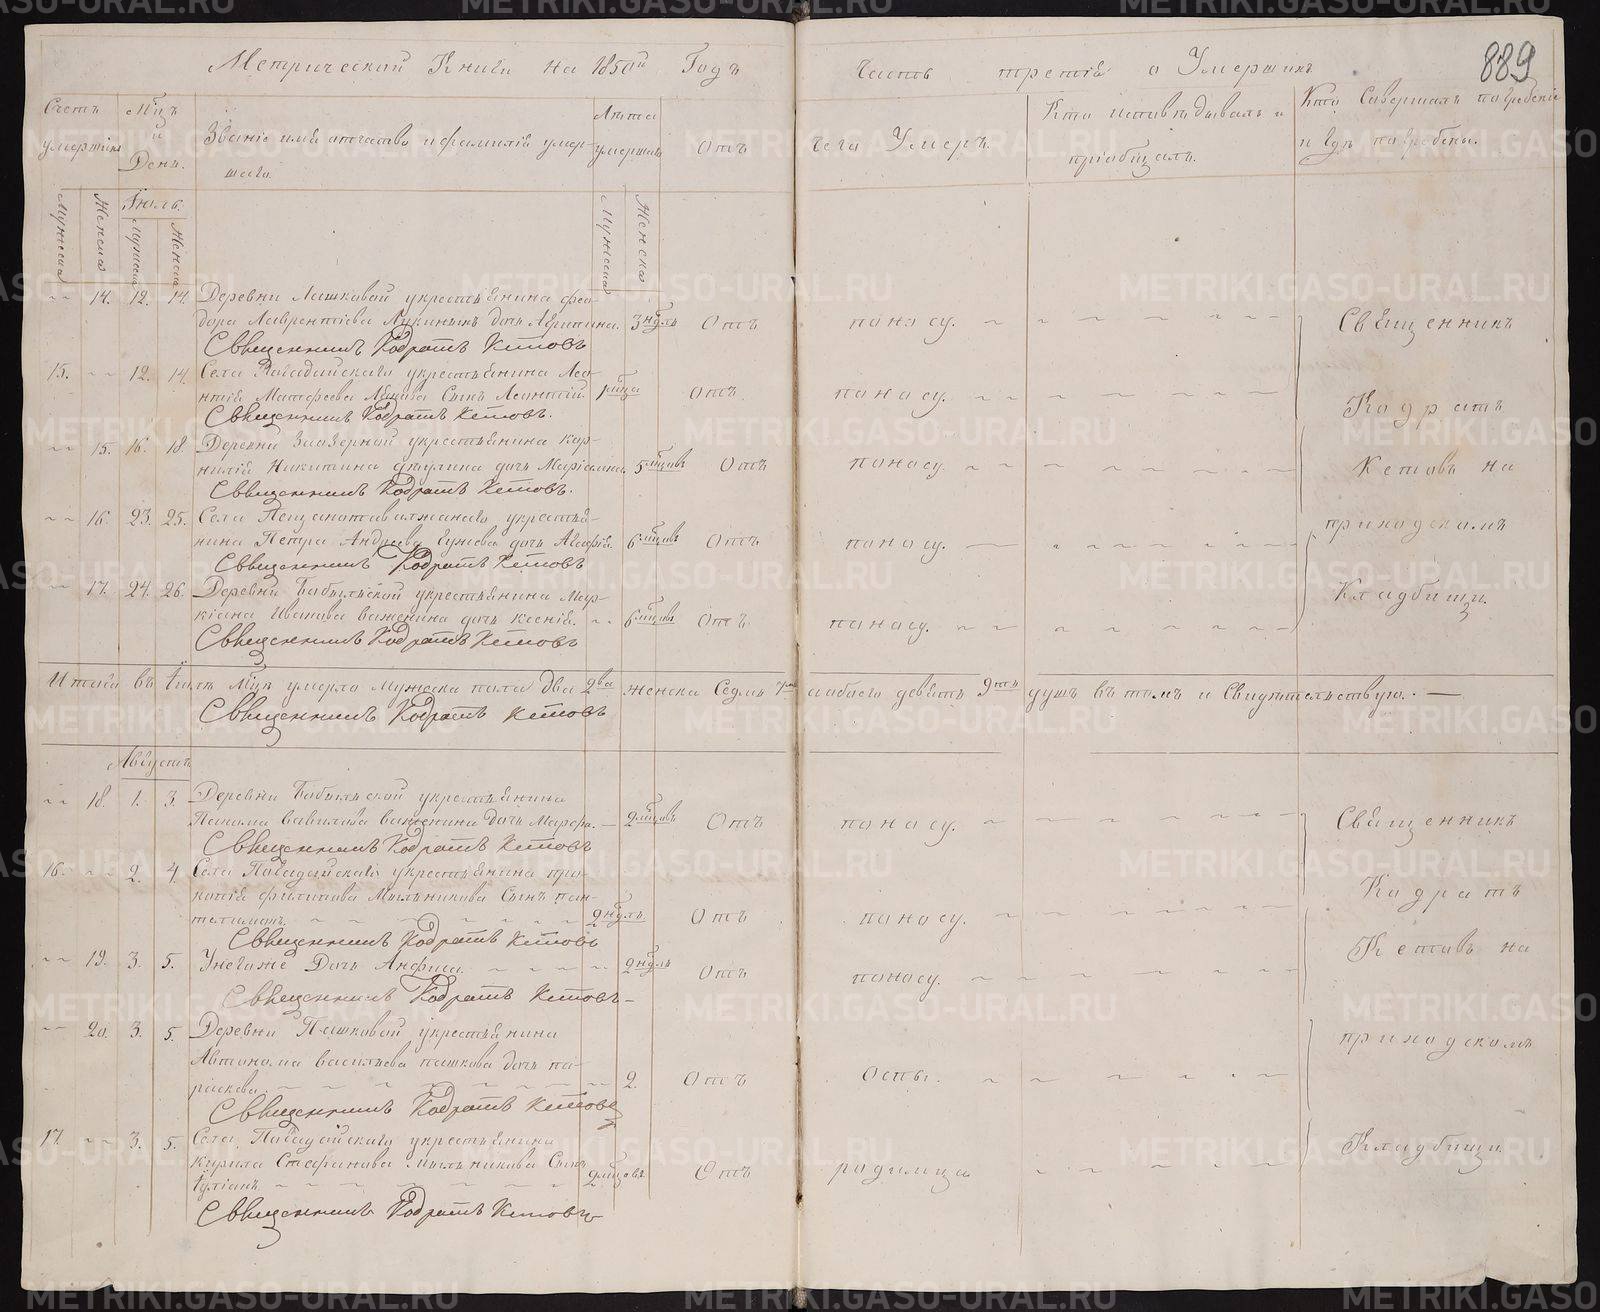 Метрической Книги на 1850й Годъ
Часть третія о Умершихъ
889
Счетъ умершихъ
Мцъ и День.
Званіе имя отчество и фамилія умер-
шаго.
Лѣта умершаго
Отъ
чего Умеръ.
Кто исповѣдывалъ и
пріобщалъ.
Кто Совершалъ погребеніе
и гдѣ погребены.
Мужеска
Женска
Іюль.
Мужеска
Женска
Мужеска
Женска
14. 12. 14. Деревни Пашковой у крестьянина Фео-
дора Лаврентіева дочь Агрипина. 3 ндль Отъ поносу.
Священникъ Кодратъ Кетовъ
15. 12. 14. Села у крестьянина Лео-
нтія Матфеева Сынъ Леонтій. 1 мца Отъ поносу.
Священникъ Кодратъ Кетовъ.
15. 16. 18. Деревни Заозерной у крестьянина Кор-
нилія Никитина дочь Маріамна. 5 мцовъ Отъ поносу.
Священникъ Кодратъ Кетовъ.
16. 23. 25. Села у крестья-
нина Петра Андреева дочь Агафія. 6 мцовъ Отъ поносу.
Священникъ Кодратъ Кетовъ
17. 24. 26. Деревни у крестьянина Мар-
кіана Иванова Важенина дочь Ксенія. 6 мцовъ Отъ поносу.
Священникъ Кодратъ Кетовъ
Священникъ
Кодратъ
Кетовъ на
приходскомъ
Кладбищи.
Итого въ Іюлѣ Мцѣ умерло Мужеска пола два 2ва женска Седмь 7мь а обоего девять 9ть душъ въ томъ и Свидѣтельствую.
Священникъ Кодратъ Кетовъ
Августъ
18. 1. 3. Деревни у крестьянина
Пахома Вавилова Важенина дочь Марфа. 2 мцовъ Отъ поносу.
Священникъ Кодратъ Кетовъ
16. 2. 4. Села у крестьянина Про-
копія Филипова Мыльникова Сынъ Пан-
телимонъ 2 ндль Отъ поносу.
Священникъ Кодратъ Кетовъ
19. 3. 5. У негоже Дочь Анфиса. 2 ндль Отъ поносу.
Священникъ Кодратъ Кетовъ
20. 3. 5. Деревни Пашковой у крестьянина
Автонома Васильева Пашкова дочь Па-
раскева. 2. Отъ Оспы.
Священникъ Кодратъ Кетовъ
17. 3. 5. Села у крестьянина
Кирила Стефанова Мыльникова Сынъ
Іуліанъ 2 мцовъ Отъ родимца
Священникъ Кодратъ Кетовъ
Священникъ
Кодратъ
Кетовъ на
приходскомъ
Кладбищи.
METRIKI.GASO-URAL.RU